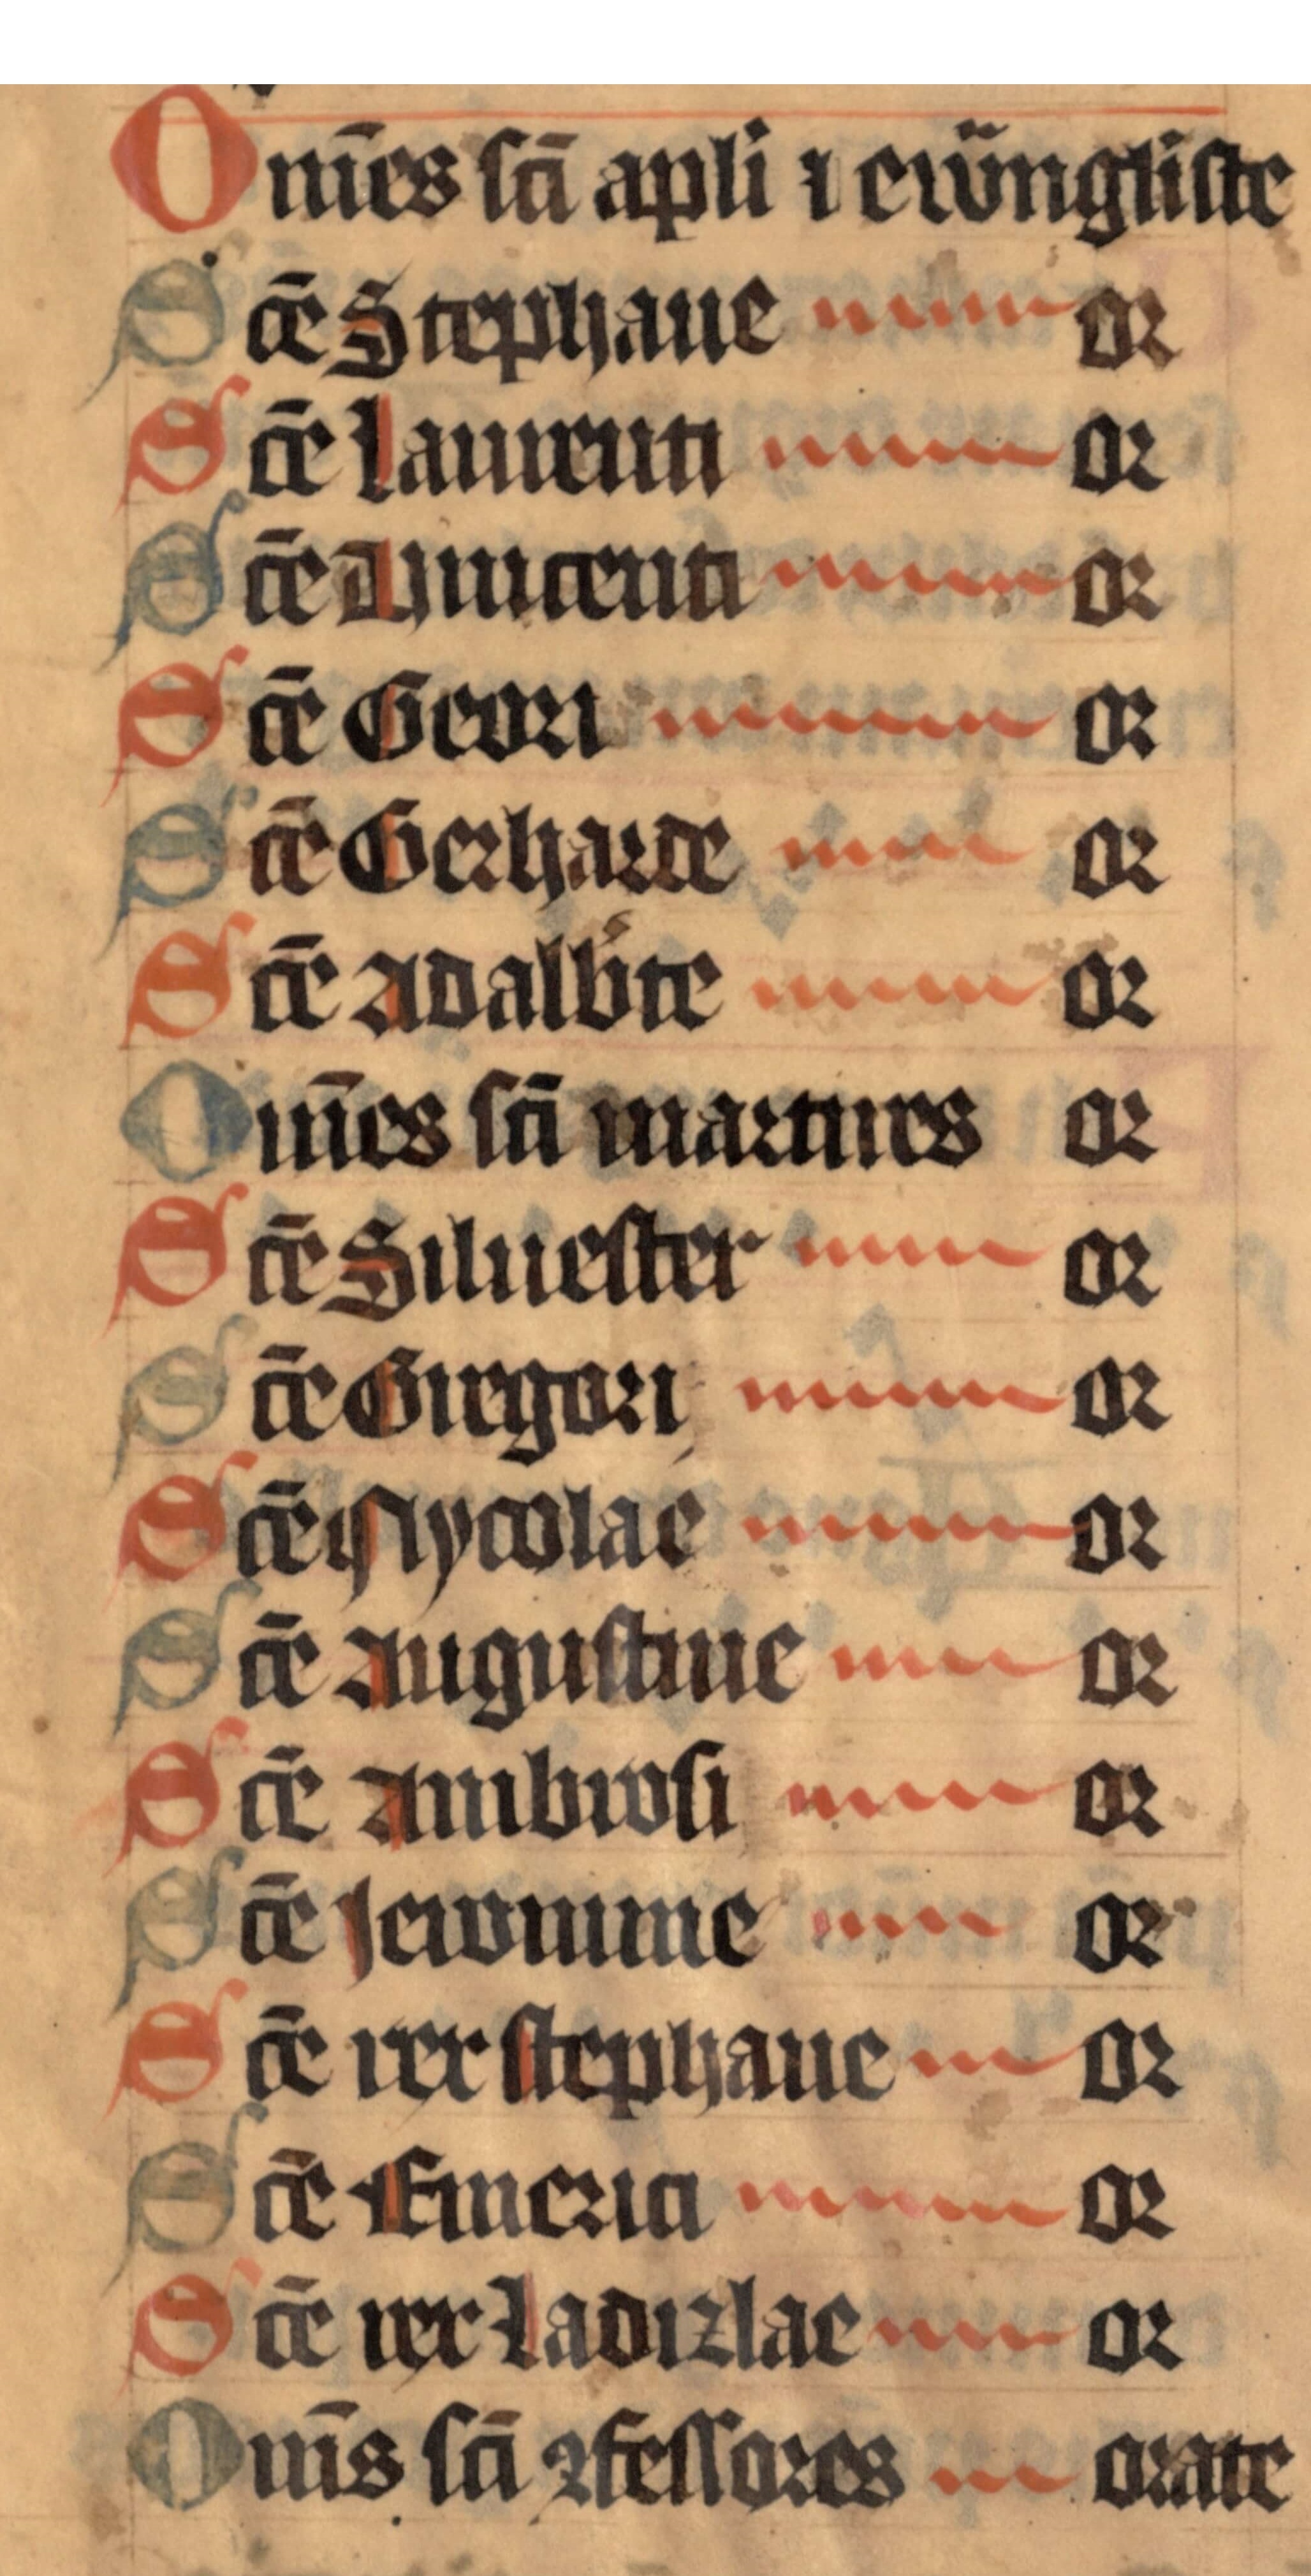 Om̄es sc̄i apl̄i ⁊ ewāngliste
Sc̄e Stephane or
Sc̄e laurenti or
Sc̄e Vincenti or
Sc̄e Geori or
Sc̄e Gerharde or
Sc̄e Adalb̾te or
Om̄es sc̄i martires or
Sc̄e Siluester or
Sc̄e Gregori or
Sc̄e Nycolae or
Sc̄e Augustine or
Sc̄e Ambrosi or
Sc̄e Jeronime or
Sc̄e rex stephane or
Sc̄e Emerici or
Sc̄e rex Ladizlae or
Om̄s sc̄i ꝯfessores orate